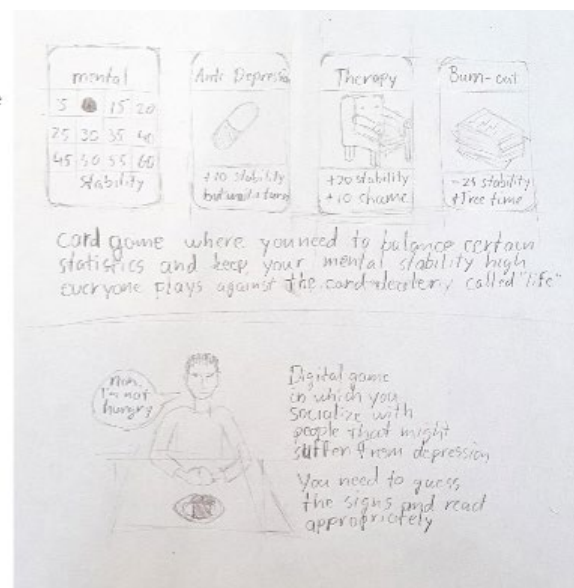 mental
5 15 20
25 30 35 40
45 50 55 60
Stability
Anti Depressa
+10 stability
but wait 1 turn
Therapy
+20 stability
+10 shame
Burn-out
-25 stability
+free time
card game where you need to balance certain
statistics and keep your mental stability high
everyone plays against the card-dealer, called "life"
Nah,
I'm not
hungry
Digital game
in which you
socialize with
people that might
suffer from depression
You need to guess
the signs and react
appropriately